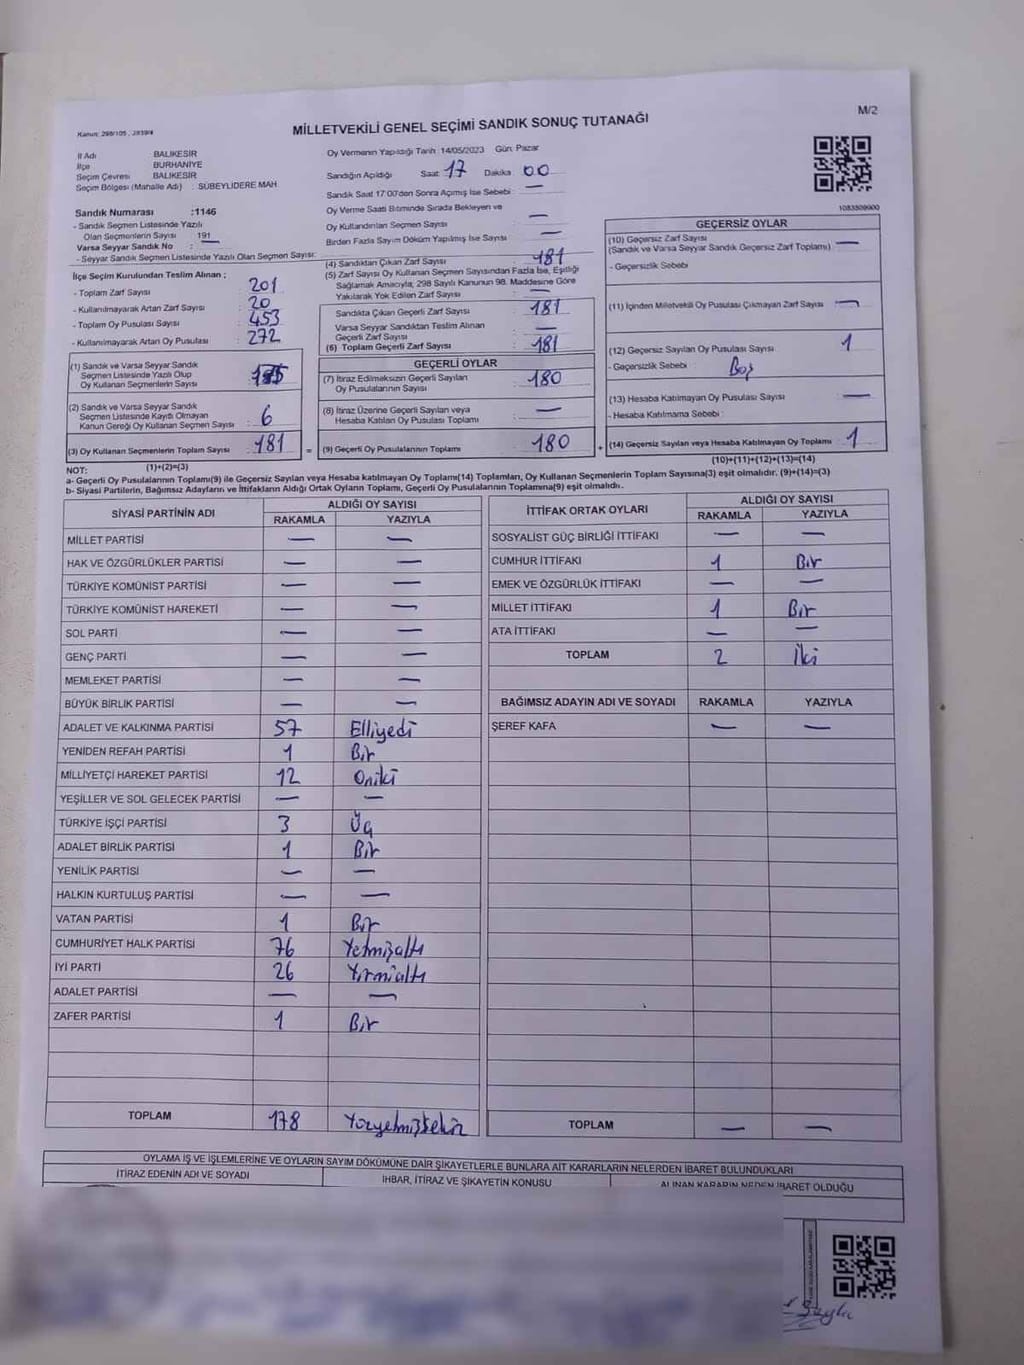 M/2
Kanun: 298/105, 2839/4
MİLLETVEKİLİ GENEL SEÇİMİ SANDIK SONUÇ TUTANAĞI
İl Adı BALIKESİR
İlçe BURHANİYE
Seçim Çevresi BALIKESİR
Seçim Bölgesi (Mahalle Adı) : SÜBEYLİDERE MAH.
Sandık Numarası :1146
- Sandık Seçmen Listesinde Yazılı
Olan Seçmenlerin Sayısı 191
Varsa Seyyar Sandık No : —
- Seyyar Sandık Seçmen Listesinde Yazılı Olan Seçmen Sayısı:
Oy Vermenin Yapıldığı Tarih :14/05/2023 Gün: Pazar
Sandığın Açıldığı Saat: 17 Dakika: 00
Sandık Saat 17:00'den Sonra Açımış İse Sebebi : —
Oy Verme Saati Bitiminde Sırada Bekleyen ve
Oy Kullandırılan Seçmen Sayısı —
Birden Fazla Sayım Döküm Yapılmış İse Sayısı —
İlçe Seçim Kurulundan Teslim Alınan ;
- Toplam Zarf Sayısı : 201
- Kullanılmayarak Artan Zarf Sayısı : 20
- Toplam Oy Pusulası Sayısı : 453
- Kullanılmayarak Artan Oy Pusulası : 272
(1) Sandık ve Varsa Seyyar Sandık
Seçmen Listesinde Yazılı Olup
Oy Kullanan Seçmenlerin Sayısı
(2) Sandık ve Varsa Seyyar Sandık
Seçmen Listesinde Kayıtlı Olmayan
Kanun Gereği Oy Kullanan Seçmen Sayısı : 6
(3) Oy Kullanan Seçmenlerin Toplam Sayısı : 181
(1)+(2)=(3)
(4) Sandıktan Çıkan Zarf Sayısı : 181
(5) Zarf Sayısı Oy Kullanan Seçmen Sayısından Fazla İse, Eşitliği
Sağlamak Amacıyla; 298 Sayılı Kanunun 98. Maddesine Göre
Yakılarak Yok Edilen Zarf Sayısı : —
Sandıkta Çıkan Geçerli Zarf Sayısı : 181
Varsa Seyyar Sandıktan Teslim Alınan
Geçerli Zarf Sayısı : —
(6) Toplam Geçerli Zarf Sayısı : 181
GEÇERLİ OYLAR
(7) İtiraz Edilmeksizin Geçerli Sayılan
Oy Pusulalarının Sayısı : 180
(8) İtiraz Üzerine Geçerli Sayılan veya
Hesaba Katılan Oy Pusulası Toplamı : —
= (9) Geçerli Oy Pusulalarının Toplamı : 180 +
1083509900
GEÇERSİZ OYLAR
(10) Geçersiz Zarf Sayısı
(Sandık ve Varsa Seyyar Sandık Geçersiz Zarf Toplamı) —
- Geçersizlik Sebebi
(11) İçinden Milletvekili Oy Pusulası Çıkmayan Zarf Sayısı : —
(12) Geçersiz Sayılan Oy Pusulası Sayısı : 1
- Geçersizlik Sebebi : Boş
(13) Hesaba Katılmayan Oy Pusulası Sayısı : —
- Hesaba Katılmama Sebebi :
(14) Geçersiz Sayılan veya Hesaba Katılmayan Oy Toplamı : 1
(10)+(11)+(12)+(13)=(14)
NOT:
a- Geçerli Oy Pusulalarının Toplamı(9) ile Geçersiz Sayılan veya Hesaba katılmayan Oy Toplamı(14) Toplamları, Oy Kullanan Seçmenlerin Toplam Sayısına(3) eşit olmalıdır. (9)+(14)=(3)
b- Siyasi Partilerin, Bağımsız Adayların ve İttifakların Aldığı Ortak Oyların Toplamı, Geçerli Oy Pusulalarının Toplamına(9) eşit olmalıdır.
SİYASİ PARTİNİN ADI ALDIĞI OY SAYISI
RAKAMLA YAZIYLA
MİLLET PARTİSİ — —
HAK VE ÖZGÜRLÜKLER PARTİSİ — —
TÜRKİYE KOMÜNİST PARTİSİ — —
TÜRKİYE KOMÜNİST HAREKETİ — —
SOL PARTİ — —
GENÇ PARTİ — —
MEMLEKET PARTİSİ — —
BÜYÜK BİRLİK PARTİSİ — —
ADALET VE KALKINMA PARTİSİ 57 Elliyedi
YENİDEN REFAH PARTİSİ 1 Bir
MİLLİYETÇİ HAREKET PARTİSİ 12 Oniki
YEŞİLLER VE SOL GELECEK PARTİSİ — —
TÜRKİYE İŞÇİ PARTİSİ 3 Üç
ADALET BİRLİK PARTİSİ 1 Bir
YENİLİK PARTİSİ — —
HALKIN KURTULUŞ PARTİSİ — —
VATAN PARTİSİ 1 Bir
CUMHURİYET HALK PARTİSİ 76 Yetmişaltı
İYİ PARTİ 26 Yirmialtı
ADALET PARTİSİ — —
ZAFER PARTİSİ 1 Bir
TOPLAM 178 Yüzyetmişsekiz
İTTİFAK ORTAK OYLARI ALDIĞI OY SAYISI
RAKAMLA YAZIYLA
SOSYALİST GÜÇ BİRLİĞİ İTTİFAKI — —
CUMHUR İTTİFAKI 1 Bir
EMEK VE ÖZGÜRLÜK İTTİFAKI — —
MİLLET İTTİFAKI 1 Bir
ATA İTTİFAKI — —
TOPLAM 2 İki
BAĞIMSIZ ADAYIN ADI VE SOYADI RAKAMLA YAZIYLA
ŞEREF KAFA — —
TOPLAM — —
OYLAMA İŞ VE İŞLEMLERİNE VE OYLARIN SAYIM DÖKÜMÜNE DAİR ŞİKAYETLERLE BUNLARA AİT KARARLARIN NELERDEN İBARET BULUNDUKLARI
İTİRAZ EDENİN ADI VE SOYADI İHBAR, İTİRAZ VE ŞİKAYETİN KONUSU ALINAN KARARIN NEDEN İBARET OLDUĞU